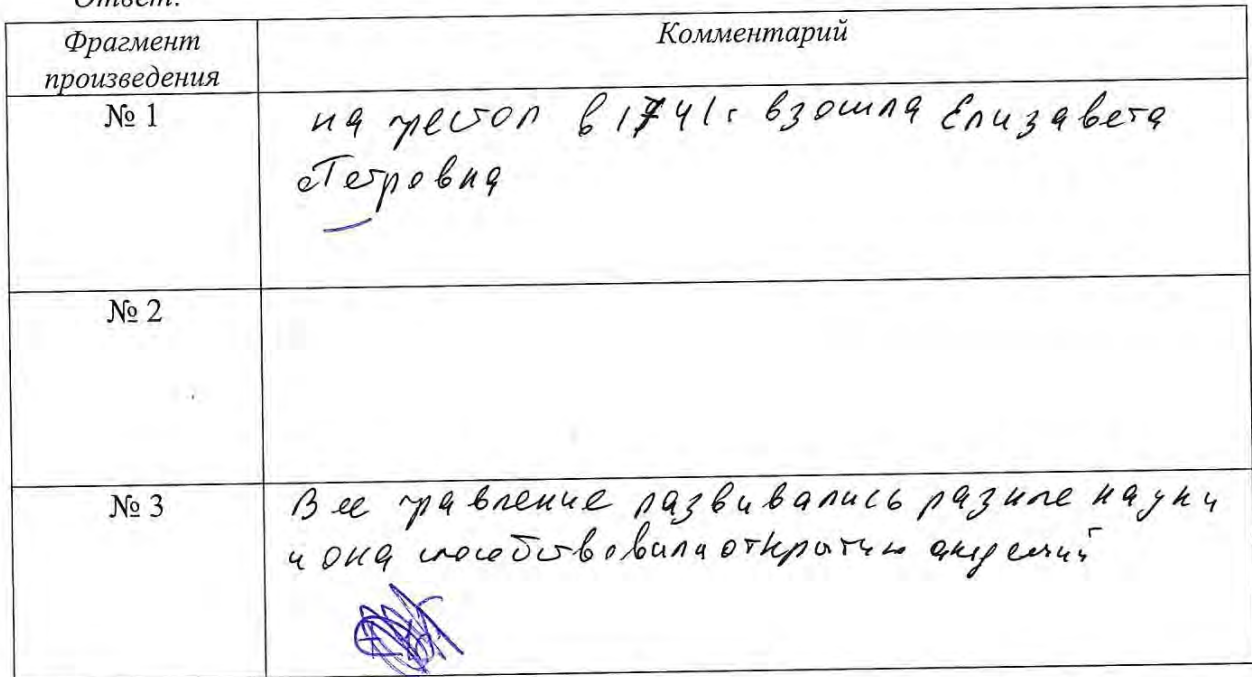 Ответ:
Фрагмент
произведения
Комментарий
№ 1
на престол в 1741г взошла Елизавета
Петровна
№ 2
№ 3
В ее правление развивались разные науки
и она способствовала открытию академий